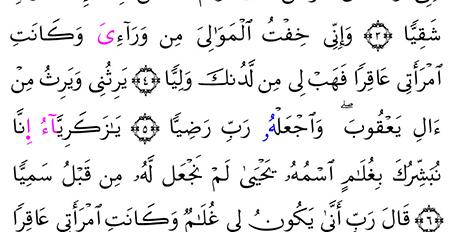 شَقِيًّا ﴿٣﴾ وَإِنِّى خِفْتُ ٱلْمَوَٰلِىَ مِن وَرَآءِىَ وَكَانَتِ
ٱمْرَأَتِى عَاقِرًا فَهَبْ لِى مِن لَّدُنكَ وَلِيًّا ﴿٤﴾ يَرِثُنِى وَيَرِثُ مِنْ
ءَالِ يَعْقُوبَ ۖ وَٱجْعَلْهُۥ رَبِّ رَضِيًّا ﴿٥﴾ يَٰزَكَرِيَّآءُ إِنَّا
نُبَشِّرُكَ بِغُلَٰمٍ ٱسْمُهُۥ يَحْيَىٰ لَمْ نَجْعَل لَّهُۥ مِن قَبْلُ سَمِيًّا
﴿٦﴾ قَالَ رَبِّ أَنَّىٰ يَكُونُ لِى غُلَٰمٌ وَكَانَتِ ٱمْرَأَتِى عَاقِرًا